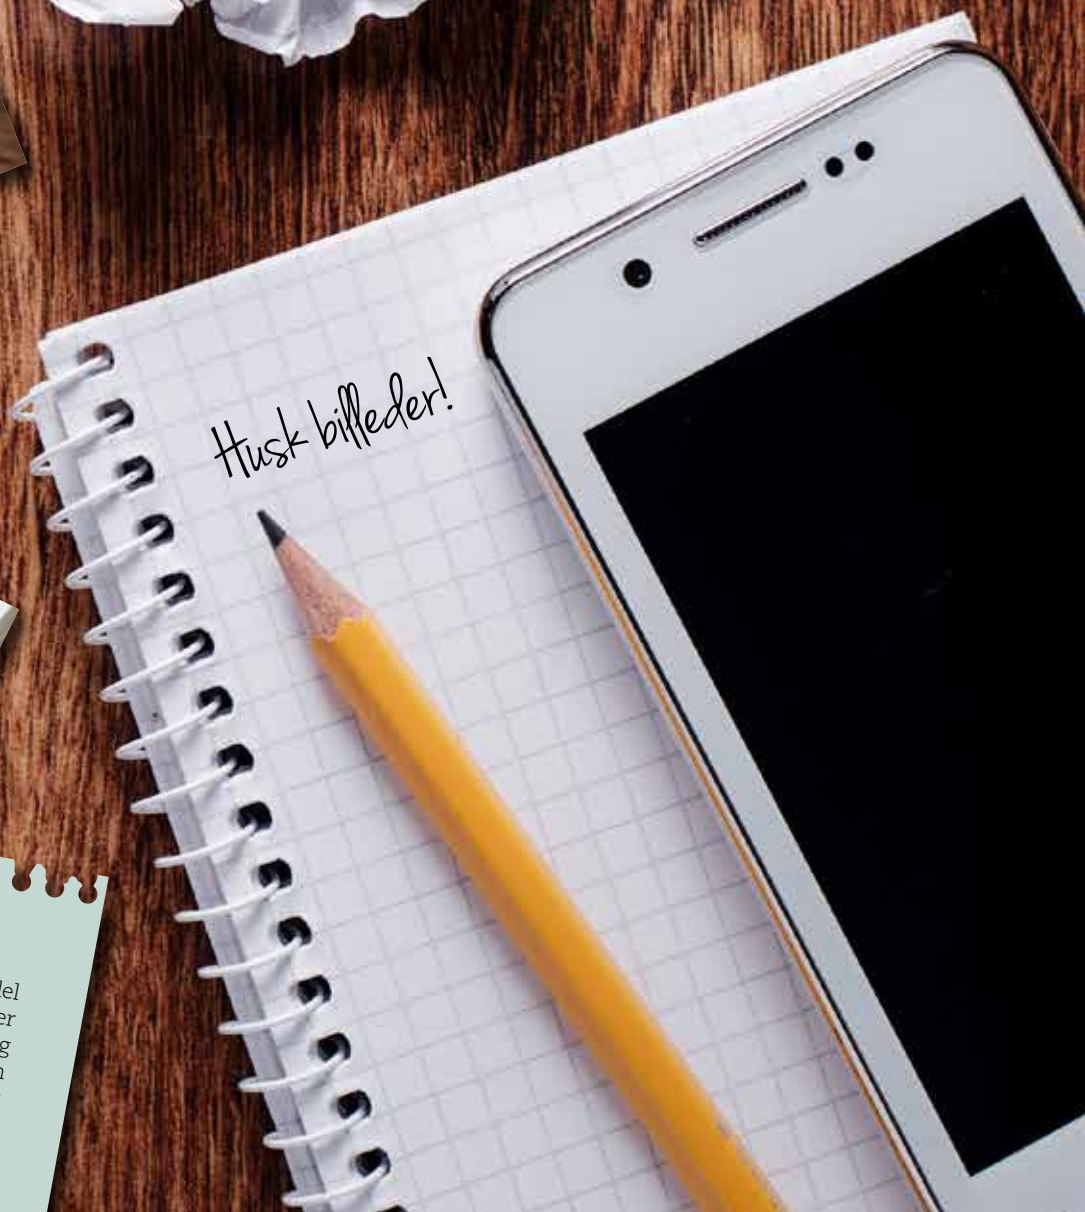 Husk billeder!